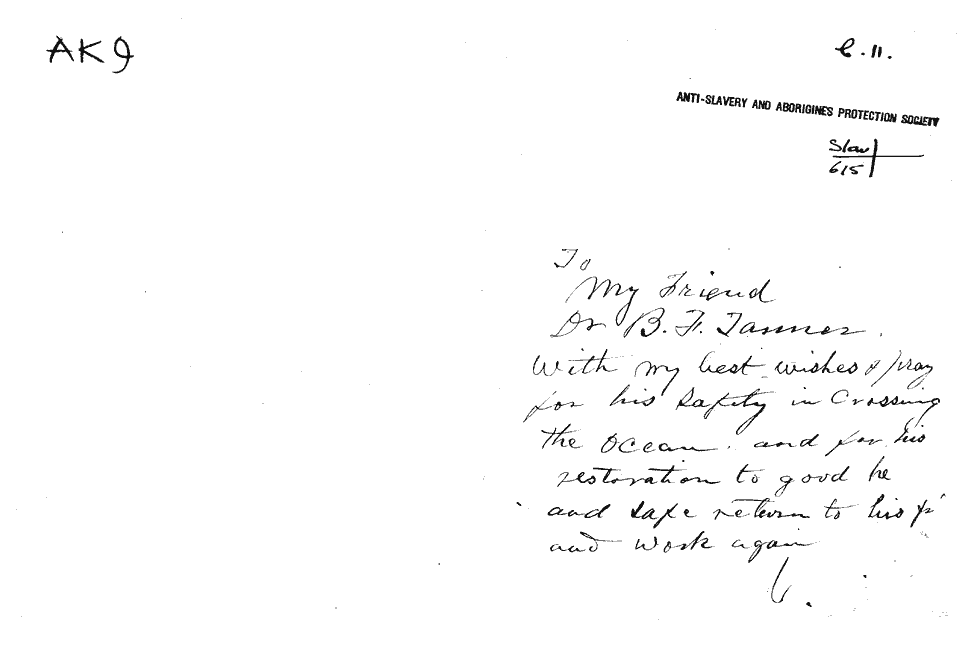 AK9
C.11.
ANTI-SLAVERY AND ABORIGINES PROTECTION SOCIETY
Slav
6/5
To
My Friend
Dr B. F. Tanner.
With my best wishes & pray
for his Safity in Crossing
the Ocean. and for his
restoration to good he
and safe return to his
and work again